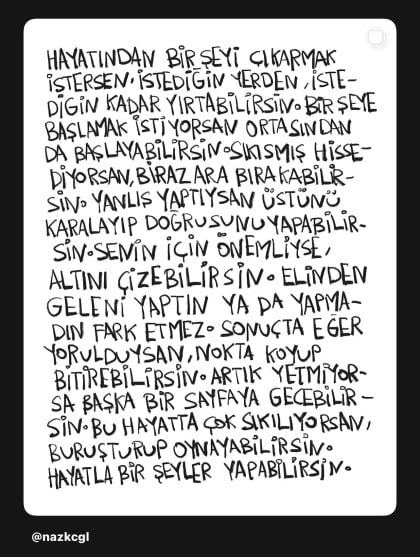 HAYATINDAN BİR ŞEYİ ÇIKARMAK
İSTERSEN, İSTEDİĞİN YERDEN, İSTE-
DİĞİN KADAR YIRTABİLİRSİN. BİR ŞEYE
BAŞLAMAK İSTİYORSAN ORTASINDAN
DA BAŞLAYABİLİRSİN. SIKIŞMIŞ HİSSE-
DİYORSAN, BİRAZ ARA BIRAKABİLİR-
SİN. YANLIŞ YAPTIYSAN ÜSTÜNÜ
KARALAYIP DOĞRUSUNU YAPABİLİR-
SİN. SENİN İÇİN ÖNEMLİYSE,
ALTINI ÇİZEBİLİRSİN. ELİNDEN
GELENİ YAPTIN YA DA YAPMA-
DIN FARK ETMEZ. SONUÇTA EĞER
YORULDUYSAN, NOKTA KOYUP
BİTİREBİLİRSİN. ARTIK YETMİYOR-
SA BAŞKA BİR SAYFAYA GEÇEBİLİR-
SİN. BU HAYATTA ÇOK SIKILIYORSAN,
BURUŞTURUP OYNAYABİLİRSİN.
HAYATLA BİR ŞEYLER YAPABİLİRSİN.
@nazkcgl